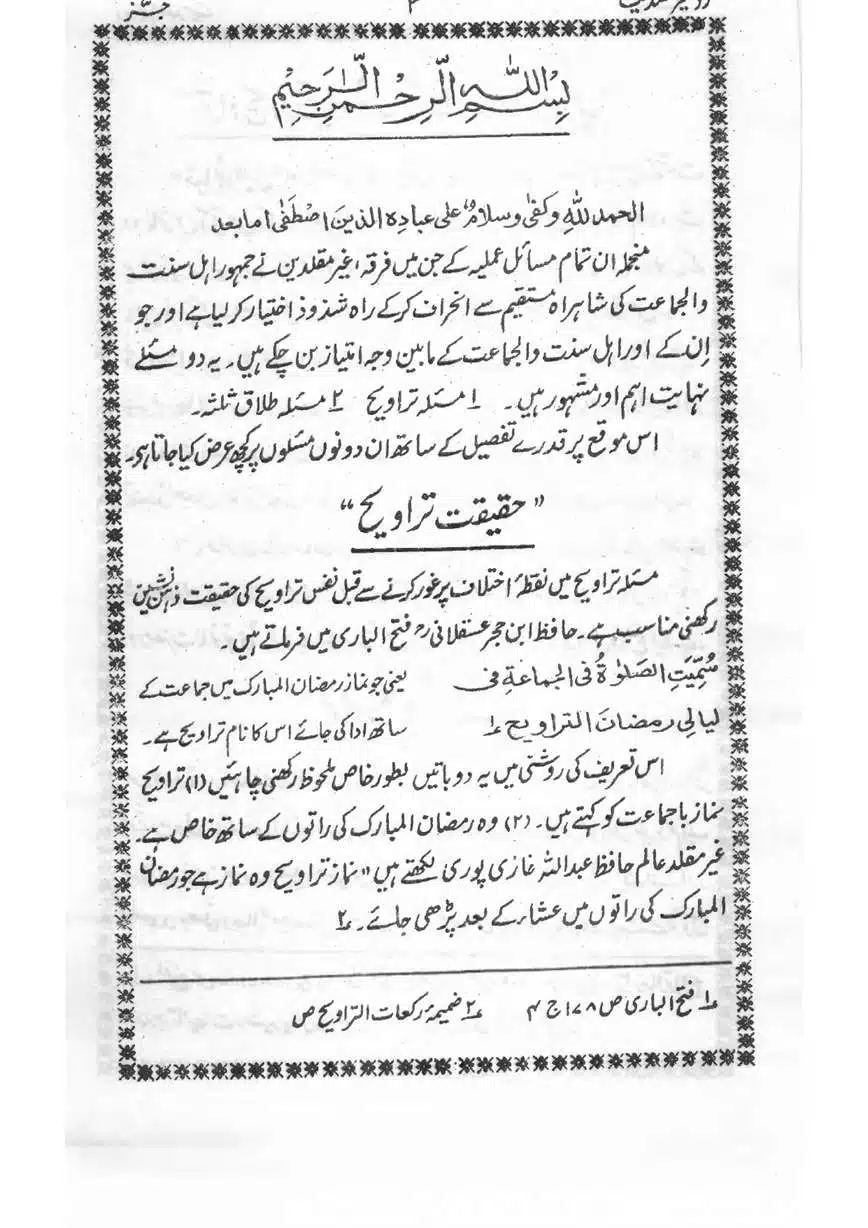 بِسْمِ اللّٰهِ الرَّحْمٰنِ الرَّحِيْمِ
الحمد للّٰهِ وکفیٰ وسلامٌ علی عبادہ الذین اصطفیٰ اما بعد
منجملہ ان تمام مسائل عملیہ کے جن میں فرقہ، غیر مقلدین نے جمہور اہل سنت
والجماعت کی شاہراہ مستقیم سے انحراف کرکے راہ شذوذ اختیار کرلیا ہے اور جو
اِن کے اور اہل سنت والجماعت کے مابین وجہ امتیاز بن چکے ہیں۔ یہ دو مسئلے
نہایت اہم اور مشہور ہیں۔ ۱ مسئلہ تراویح ۲ مسئلہ طلاق ثلثہ۔
اس موقع پر قدرے تفصیل کے ساتھ ان دونوں مسئلوں پر کچھ عرض کیا جاتا ہی۔
"حقیقت تراویح"
مسئلہ تراویح میں نقطۂ اختلاف پر غور کرنے سے قبل نفس تراویح کی حقیقت ذہن نشین
رکھنی مناسب ہے۔ حافظ ابن حجر عسقلانی رح فتح الباری میں فرماتے ہیں۔
سُمِّیَتِ الصَّلوٰۃُ فی الجماعةِ فی
لیالِی رمضانَ التراویح ؏۱
یعنی جو نماز رمضان المبارک میں جماعت کے
ساتھ ادا کی جائے اس کا نام تراویح ہے۔
اس تعریف کی روشنی میں یہ دو باتیں بطور خاص ملحوظ رکھنی چاہئیں (۱) تراویح
نماز باجماعت کو کہتے ہیں۔ (۲) وہ رمضان المبارک کی راتوں کے ساتھ خاص ہے۔
غیر مقلد عالم حافظ عبداللہ غازی پوری لکھتے ہیں "نماز تراویح وہ نماز ہے جو رمضان
المبارک کی راتوں میں عشار کے بعد پڑھی جائے۔ ؏۲
؏۱ فتح الباری ص ۱۷۸ ج ۴ ؏۲ ضمیمۂ رکعات التراویح ص